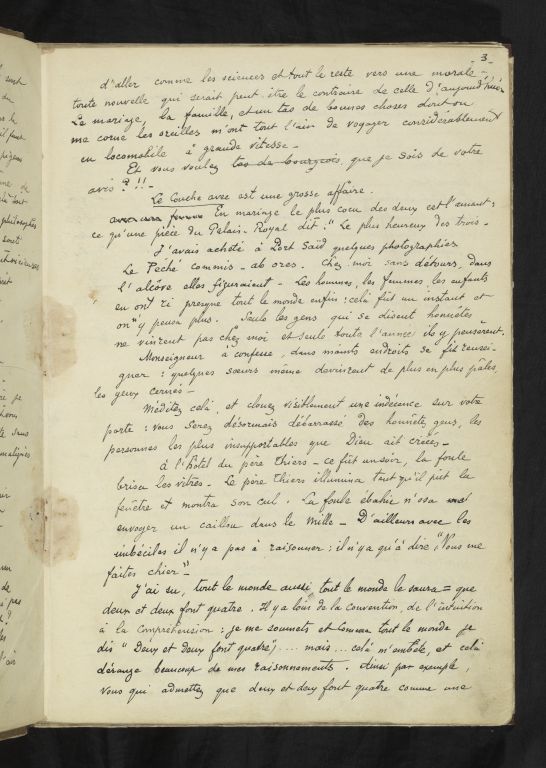 -3-
d'aller comme les sciences et tout le reste vers une morale
toute nouvelle qui serait peut-être le contraire de celle d'aujourd'hui
Le mariage, la famille, et un tas de bonnes choses dont on
me corne les oreilles m'ont tout l'air de voyager considérablement
en locomobile à grande vitesse -
Et vous voulez tas de bourgeois que je sois de votre
avis ? !! -
Le Couche avec est une grosse affaire.
En mariage le plus cocu des deux est l'amant :
ce qu'une pièce du Palais-Royal dit : " Le plus heureux des trois -
J'avais acheté à Port Saïd quelques photographies
Le Péché commis - ab ores. Chez moi sans détours, dans
l'alcôve elles figuraient - Les hommes, les femmes, les enfants
en ont ri presque tout le monde enfin : celà fût un instant et
on n'y pensa plus. Seuls les gens qui se disent honnêtes
ne vinrent pas chez moi et seuls toute l'année ils y pensèrent.
Monseigneur à confesse, dans maints endroits se fit rensei-
gner : quelques soeurs même devinrent de plus en plus pâles,
les yeux cernés -
Méditez celà, et clouez visiblement une indécence sur votre
porte : vous serez désormais débarrassé des honnêtes gens, les
personnes les plus insupportables que Dieu ait créées -
à l'hôtel du père Thiers - ce fût un soir, la foule
brisa les vîtres. Le père Thiers illumina tant qu'il put la
fenêtre et montra son cul. La foule ébahie n'osa
envoyer un caillou dans le mille - D'ailleurs avec les
imbéciles il n'y a pas à raisonner : il n'y a qu'à dire "Vous me
faites chier" -
J'ai su, tout le monde aussi, tout le monde le saura = que
deux et deux font quatre. Il y a loin de la convention, de l'intuition
à la compréhension : je me soumets et comme tout le monde je
dis " Deux et deux font quatre, .... mais ... celà m'embête, et celà
dérange beaucoup de mes raisonnements. Ainsi par exemple,
Vous qui admettez que deux et deux font quatre comme une